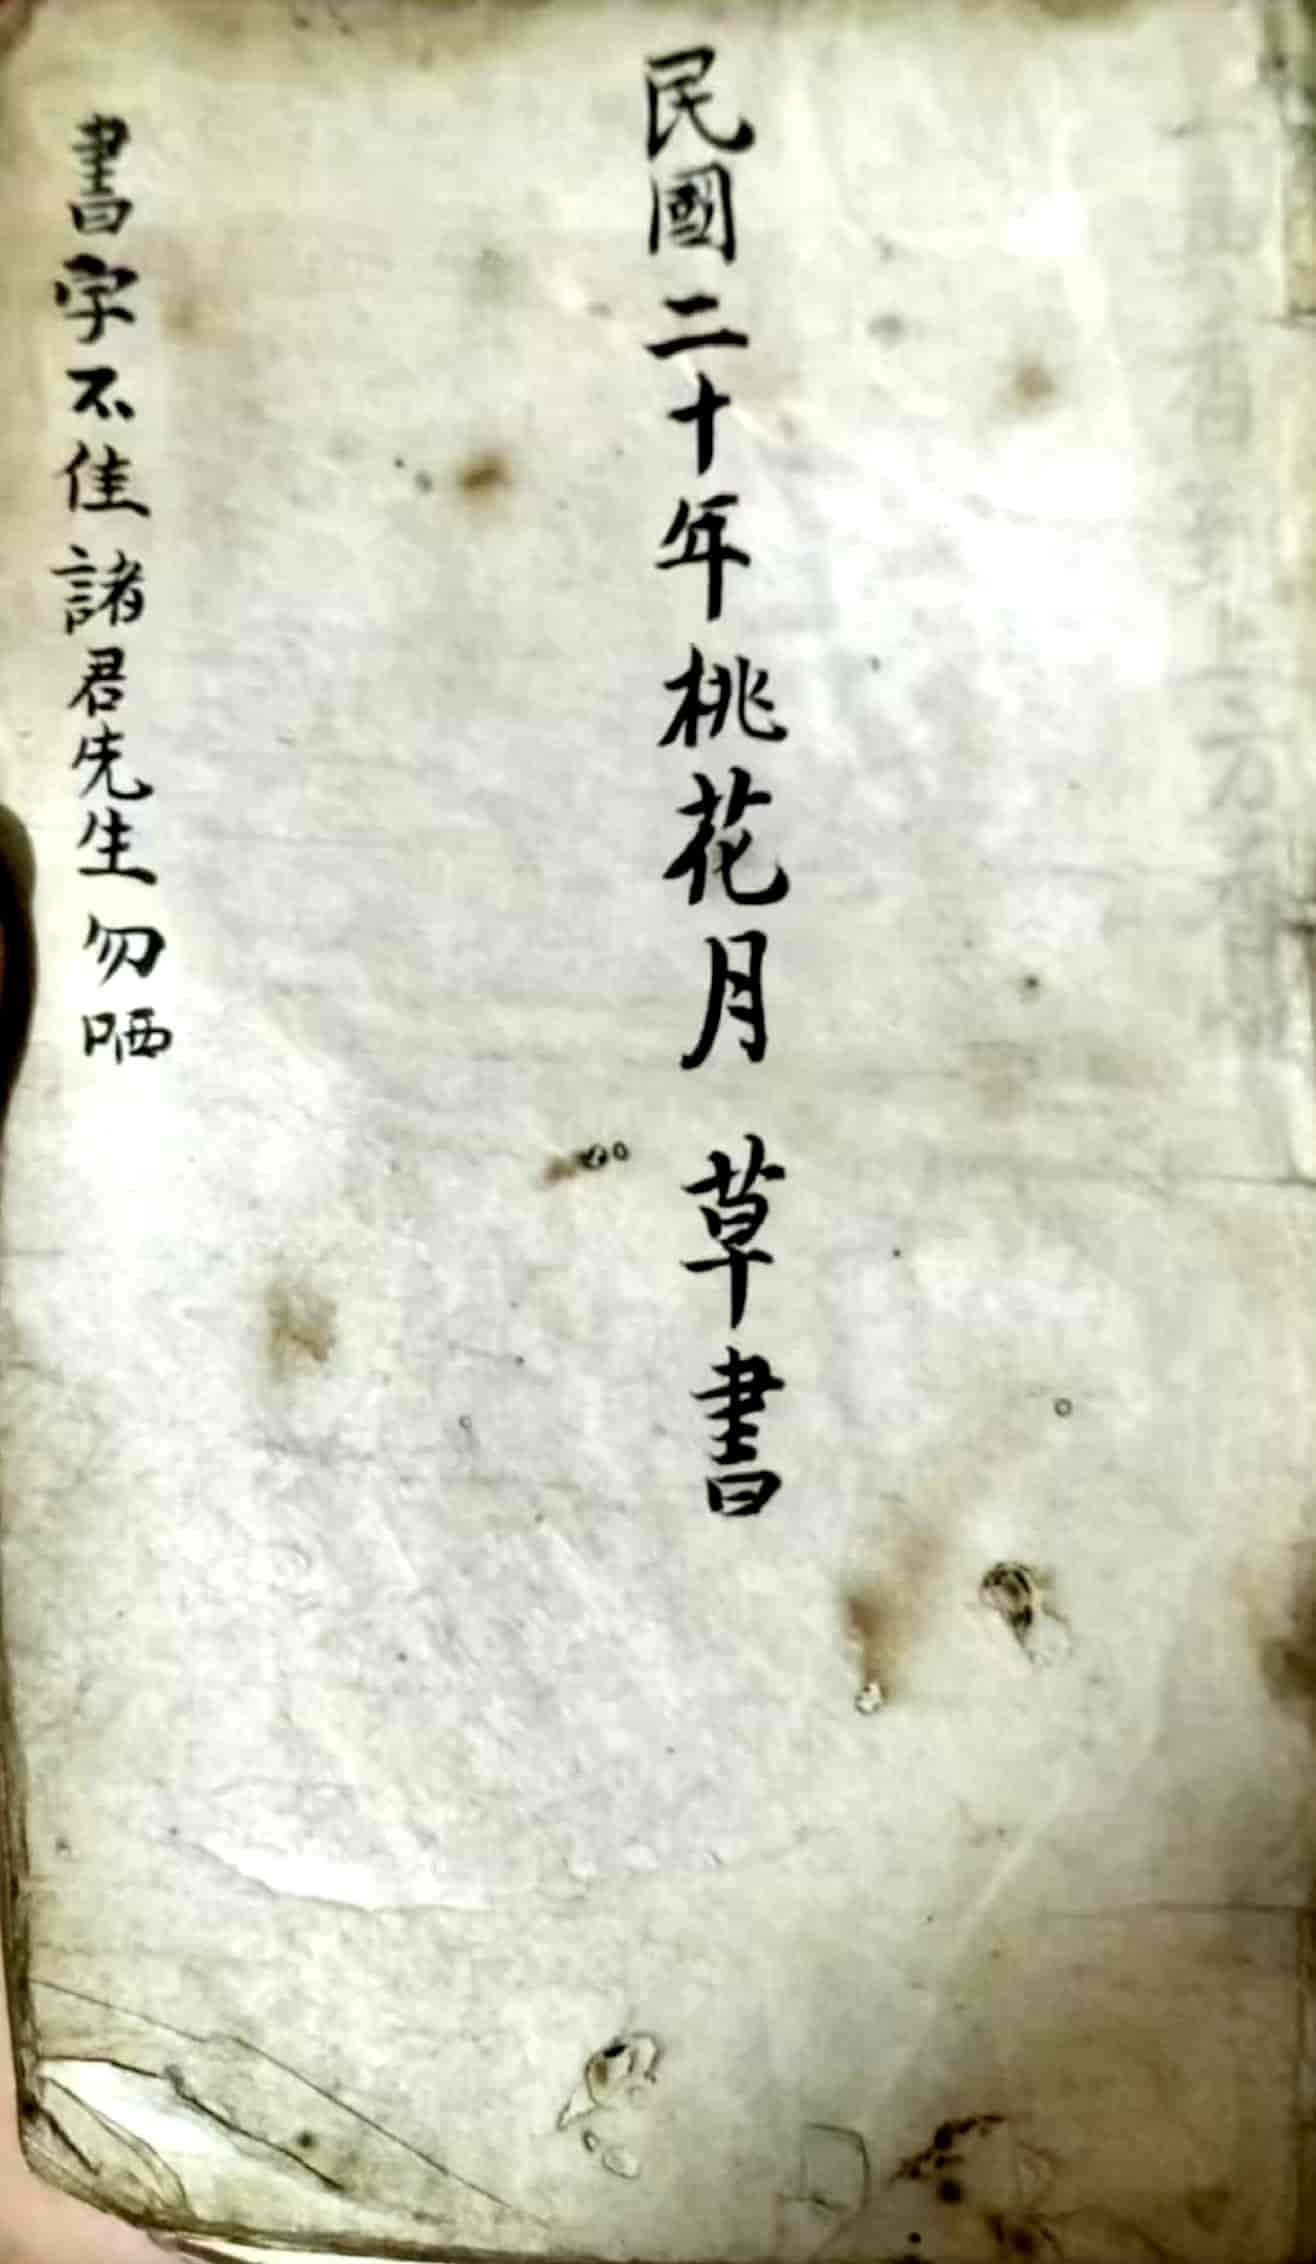 民國二十年桃花月 草書
書字不佳諸君先生勿哂